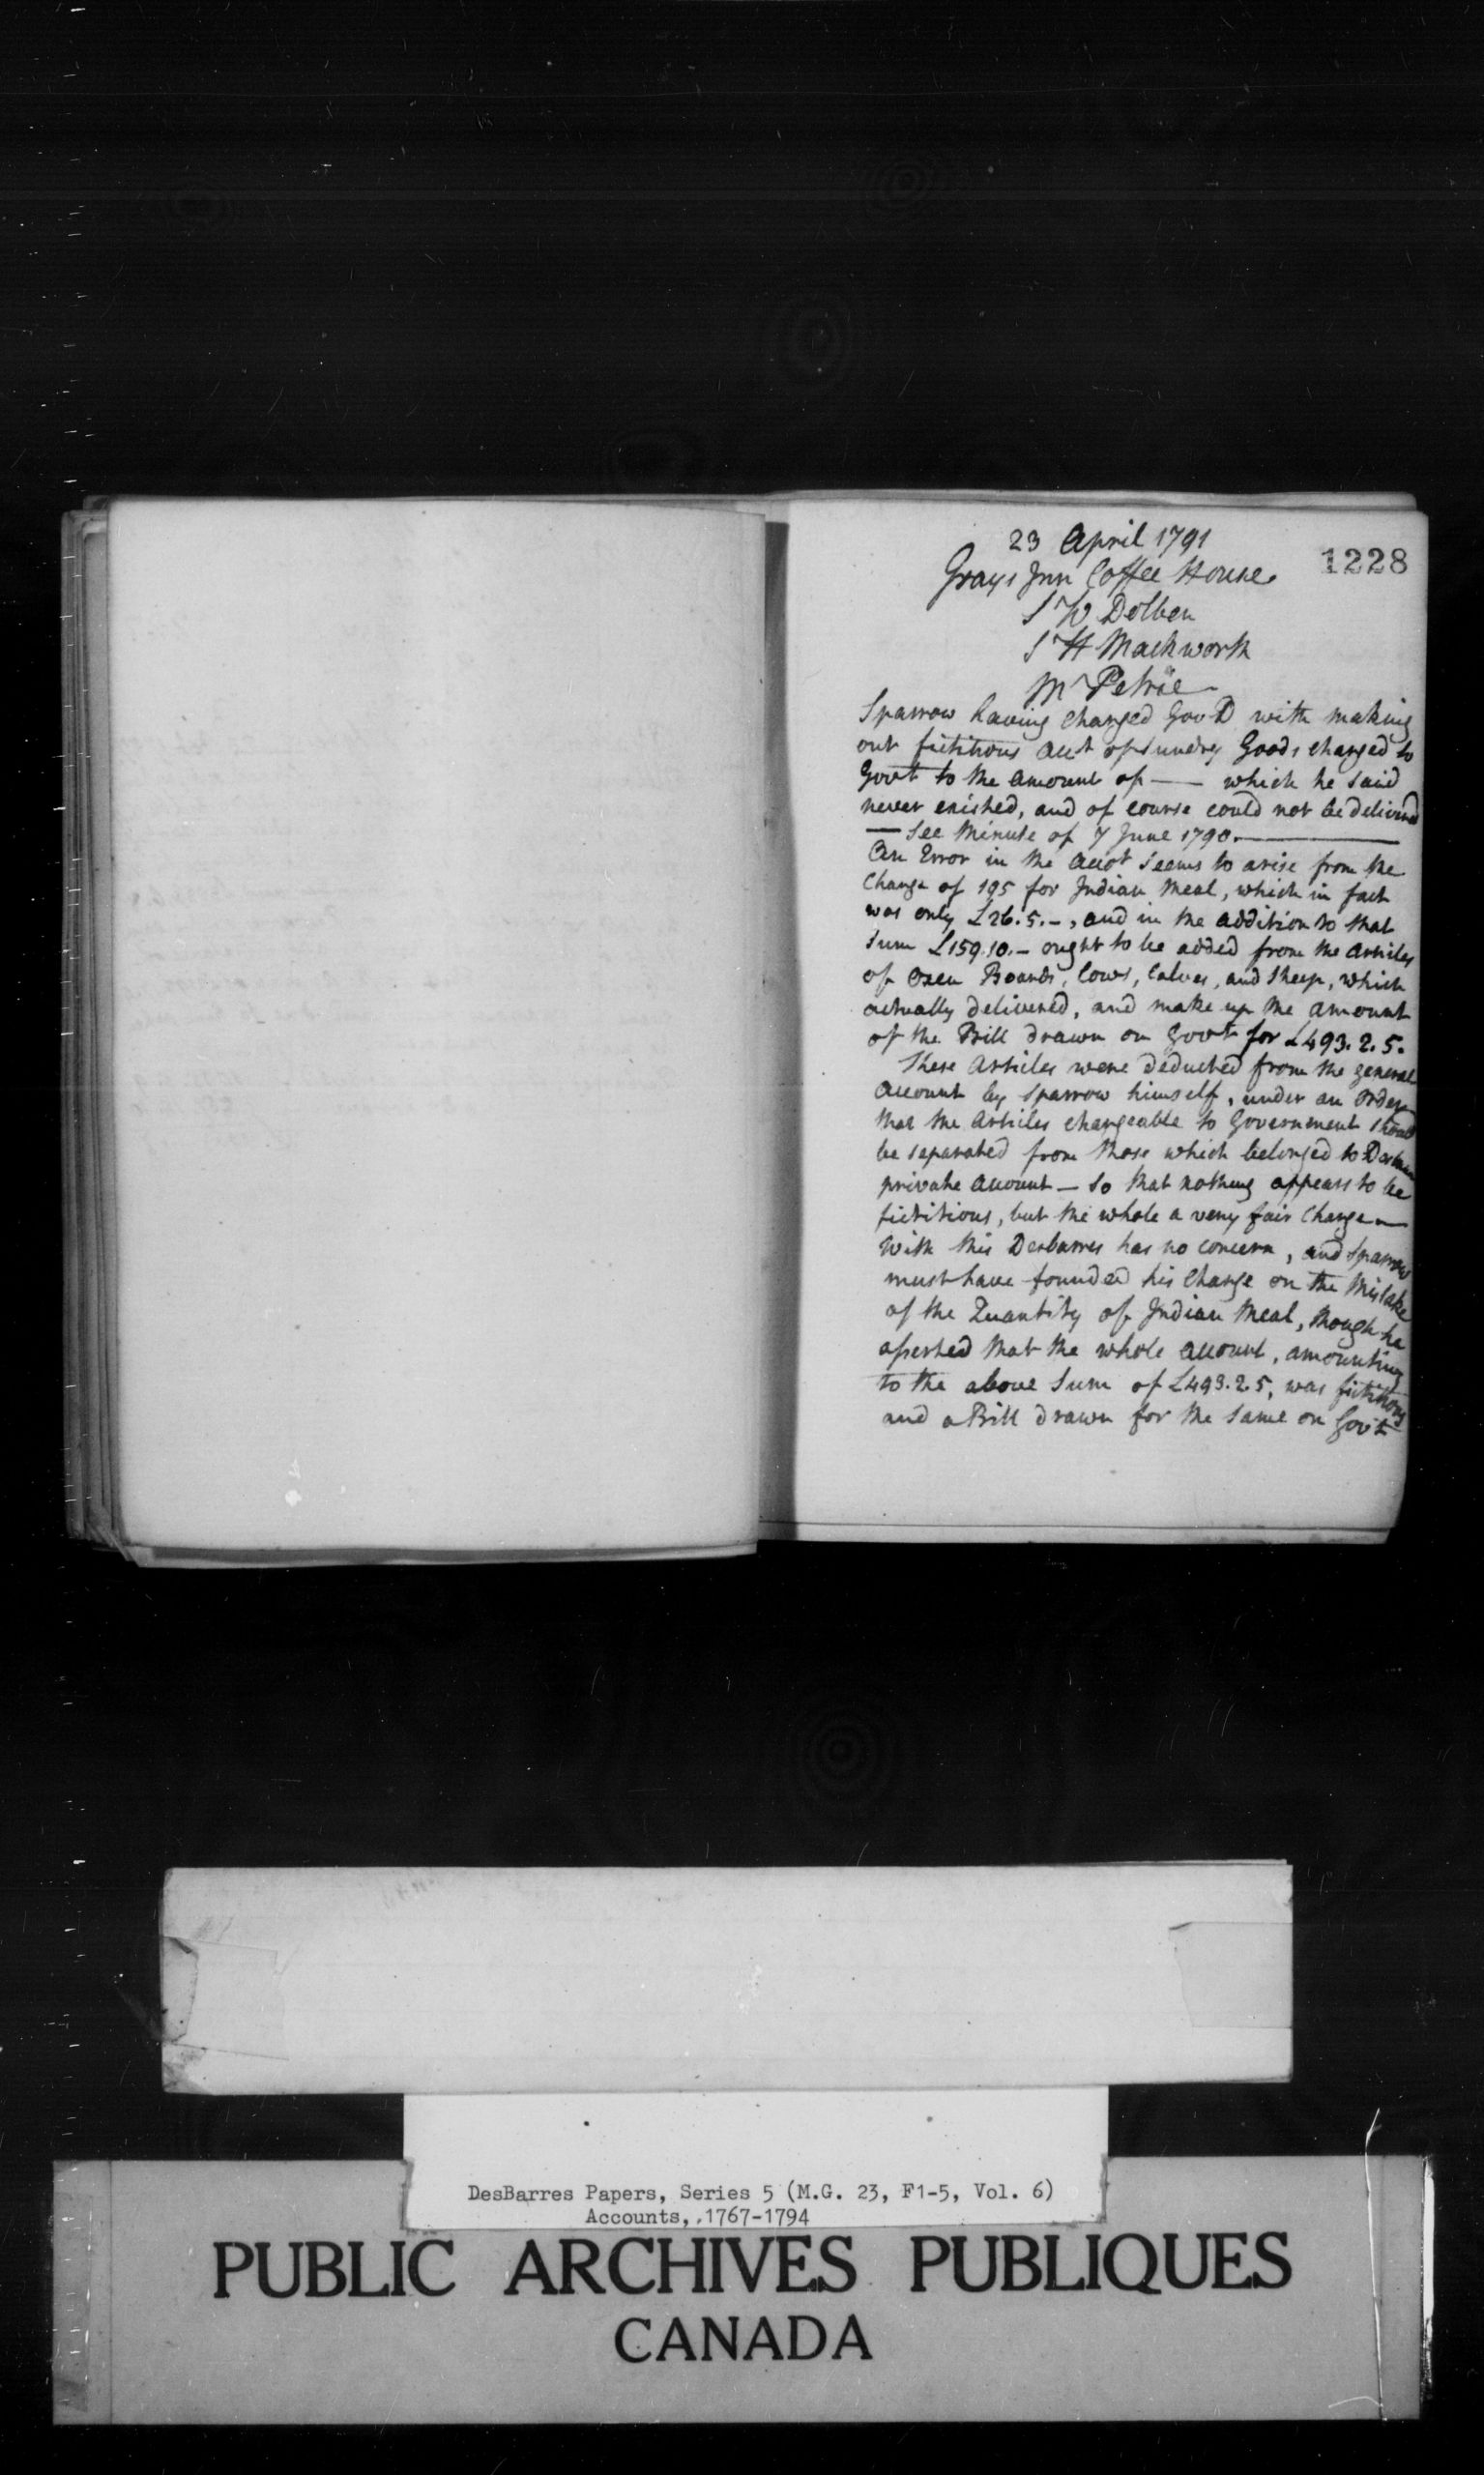 23 April 1791
1228
Grays Inn Coffee House
Sr W Dolben
Sr H Mackworth
Mr Petrie
Sparrow having charged Gov D with making
out fictitious Acct of Sundry Goods charged to
Govt to the Amount of — which he said
never existed, and of course could not be delivered
— See Minute of 7 June 1790. —
An Error in the Accot seems to arise from the
Charge of 195 for Indian Meal, which in fact
was only £26.5.-, and in the addition to that
Sum £159.10.- ought to be added from the Articles
of Oxen Boards, Cows, Calves, and Sheep, which
actually delivered, and make up the Amount
of the Bill drawn on Govt for £493.2.5.
These Articles were deducted from the general
Account by Sparrow himself, under an Order
that the Articles chargeable to Government should
be separated from those which belonged to Desbarres
private Account — So that nothing appears to be
fictitious, but the whole a very fair Charge —
With this Desbarres has no concern, and Sparrow
must have founded his Charge on the Mistake
of the Quantity of Indian Meal, though he
asserted that the whole Account, amounting
to the above Sum of £493.2.5, was fictitious
and a Bill drawn for the Same on Govt
DesBarres Papers, Series 5 (M.G. 23, F1-5, Vol. 6)
Accounts, 1767-1794
PUBLIC ARCHIVES PUBLIQUES
CANADA